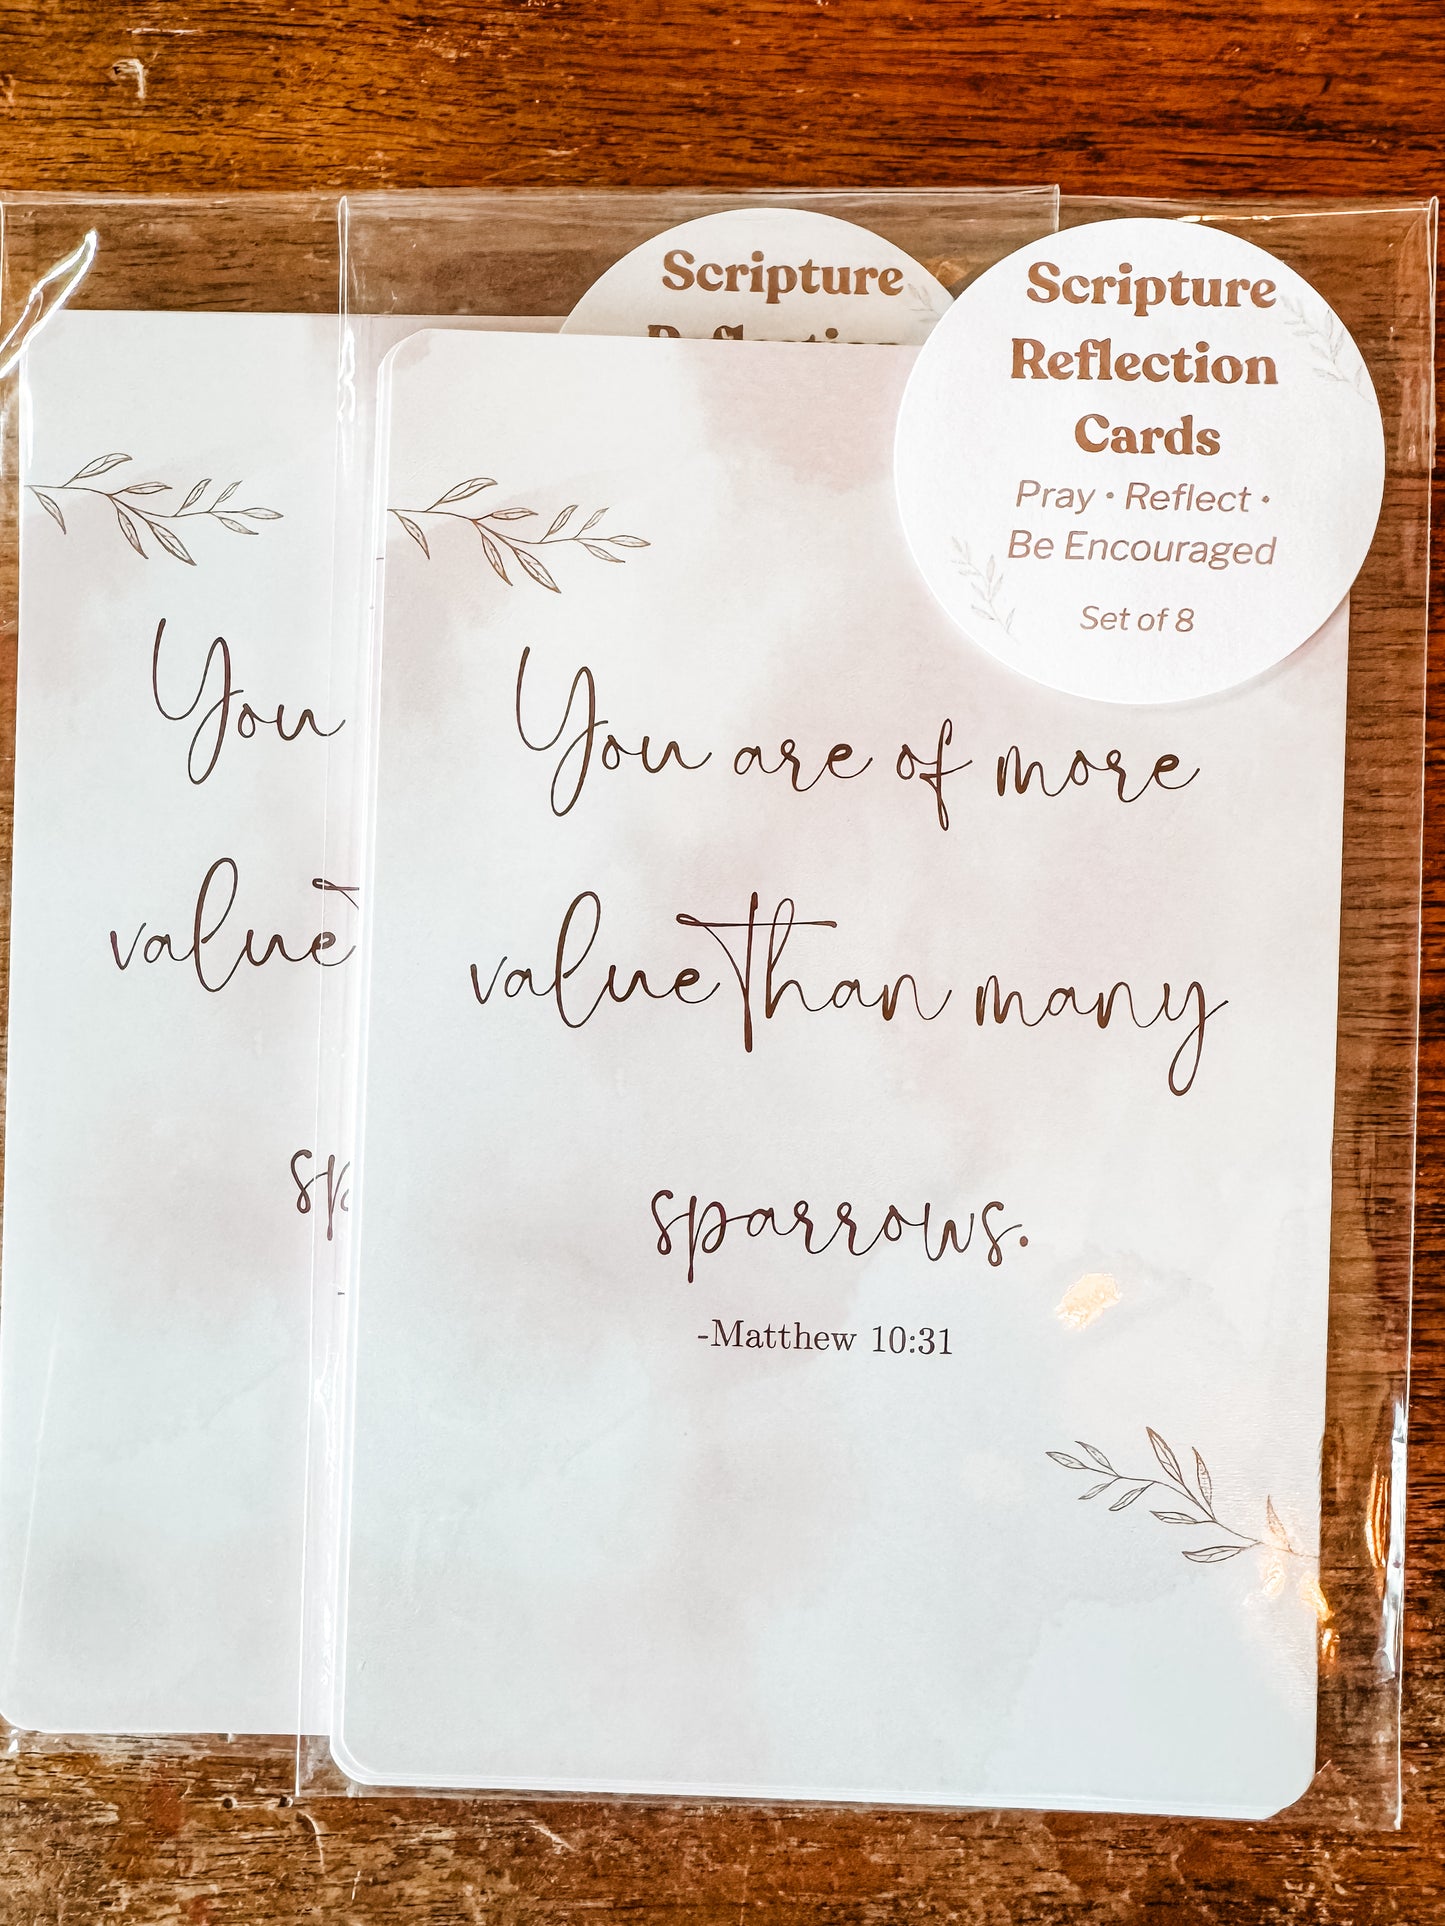 Scripture
Reflection
Scripture
Reflection
Cards
Pray • Reflect •
Be Encouraged
Set of 8
You
value
sp
You are of more
value than many
sparrows.
-Matthew 10:31